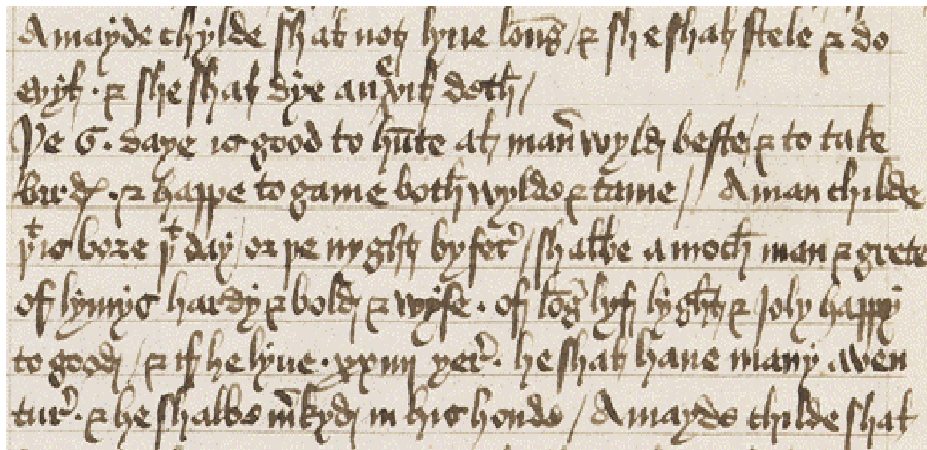 A mayde chylde shał not lyue long / & she shał stele & do
evył · & she shał dye an evił deth /
Þe 6 · daye is good to hūte ał man̄ wyld beste & to take
birdꝭ · & happe to game both wylde & tame // A man childe
þᵗ is bore þᵗ day / or þe nyght by for̉ / shalbe a moch man & grete
of lymys hardy & bold & wyse · of lōg lyf lyght & Joly happy
to good / & if he lyue · xxiiij yer̉ · he shał haue many aven
tur̉ · & he shalbe m̄kyd in his honde / A mayde childe shał